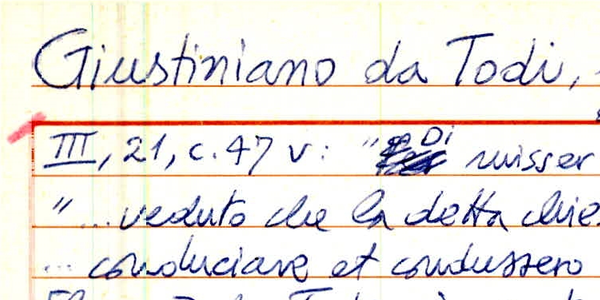 Giustiniano da Todi,
III, 21, c. 47 v: " Di misser
"... veduto che la detta chie
... conduciare et condussero